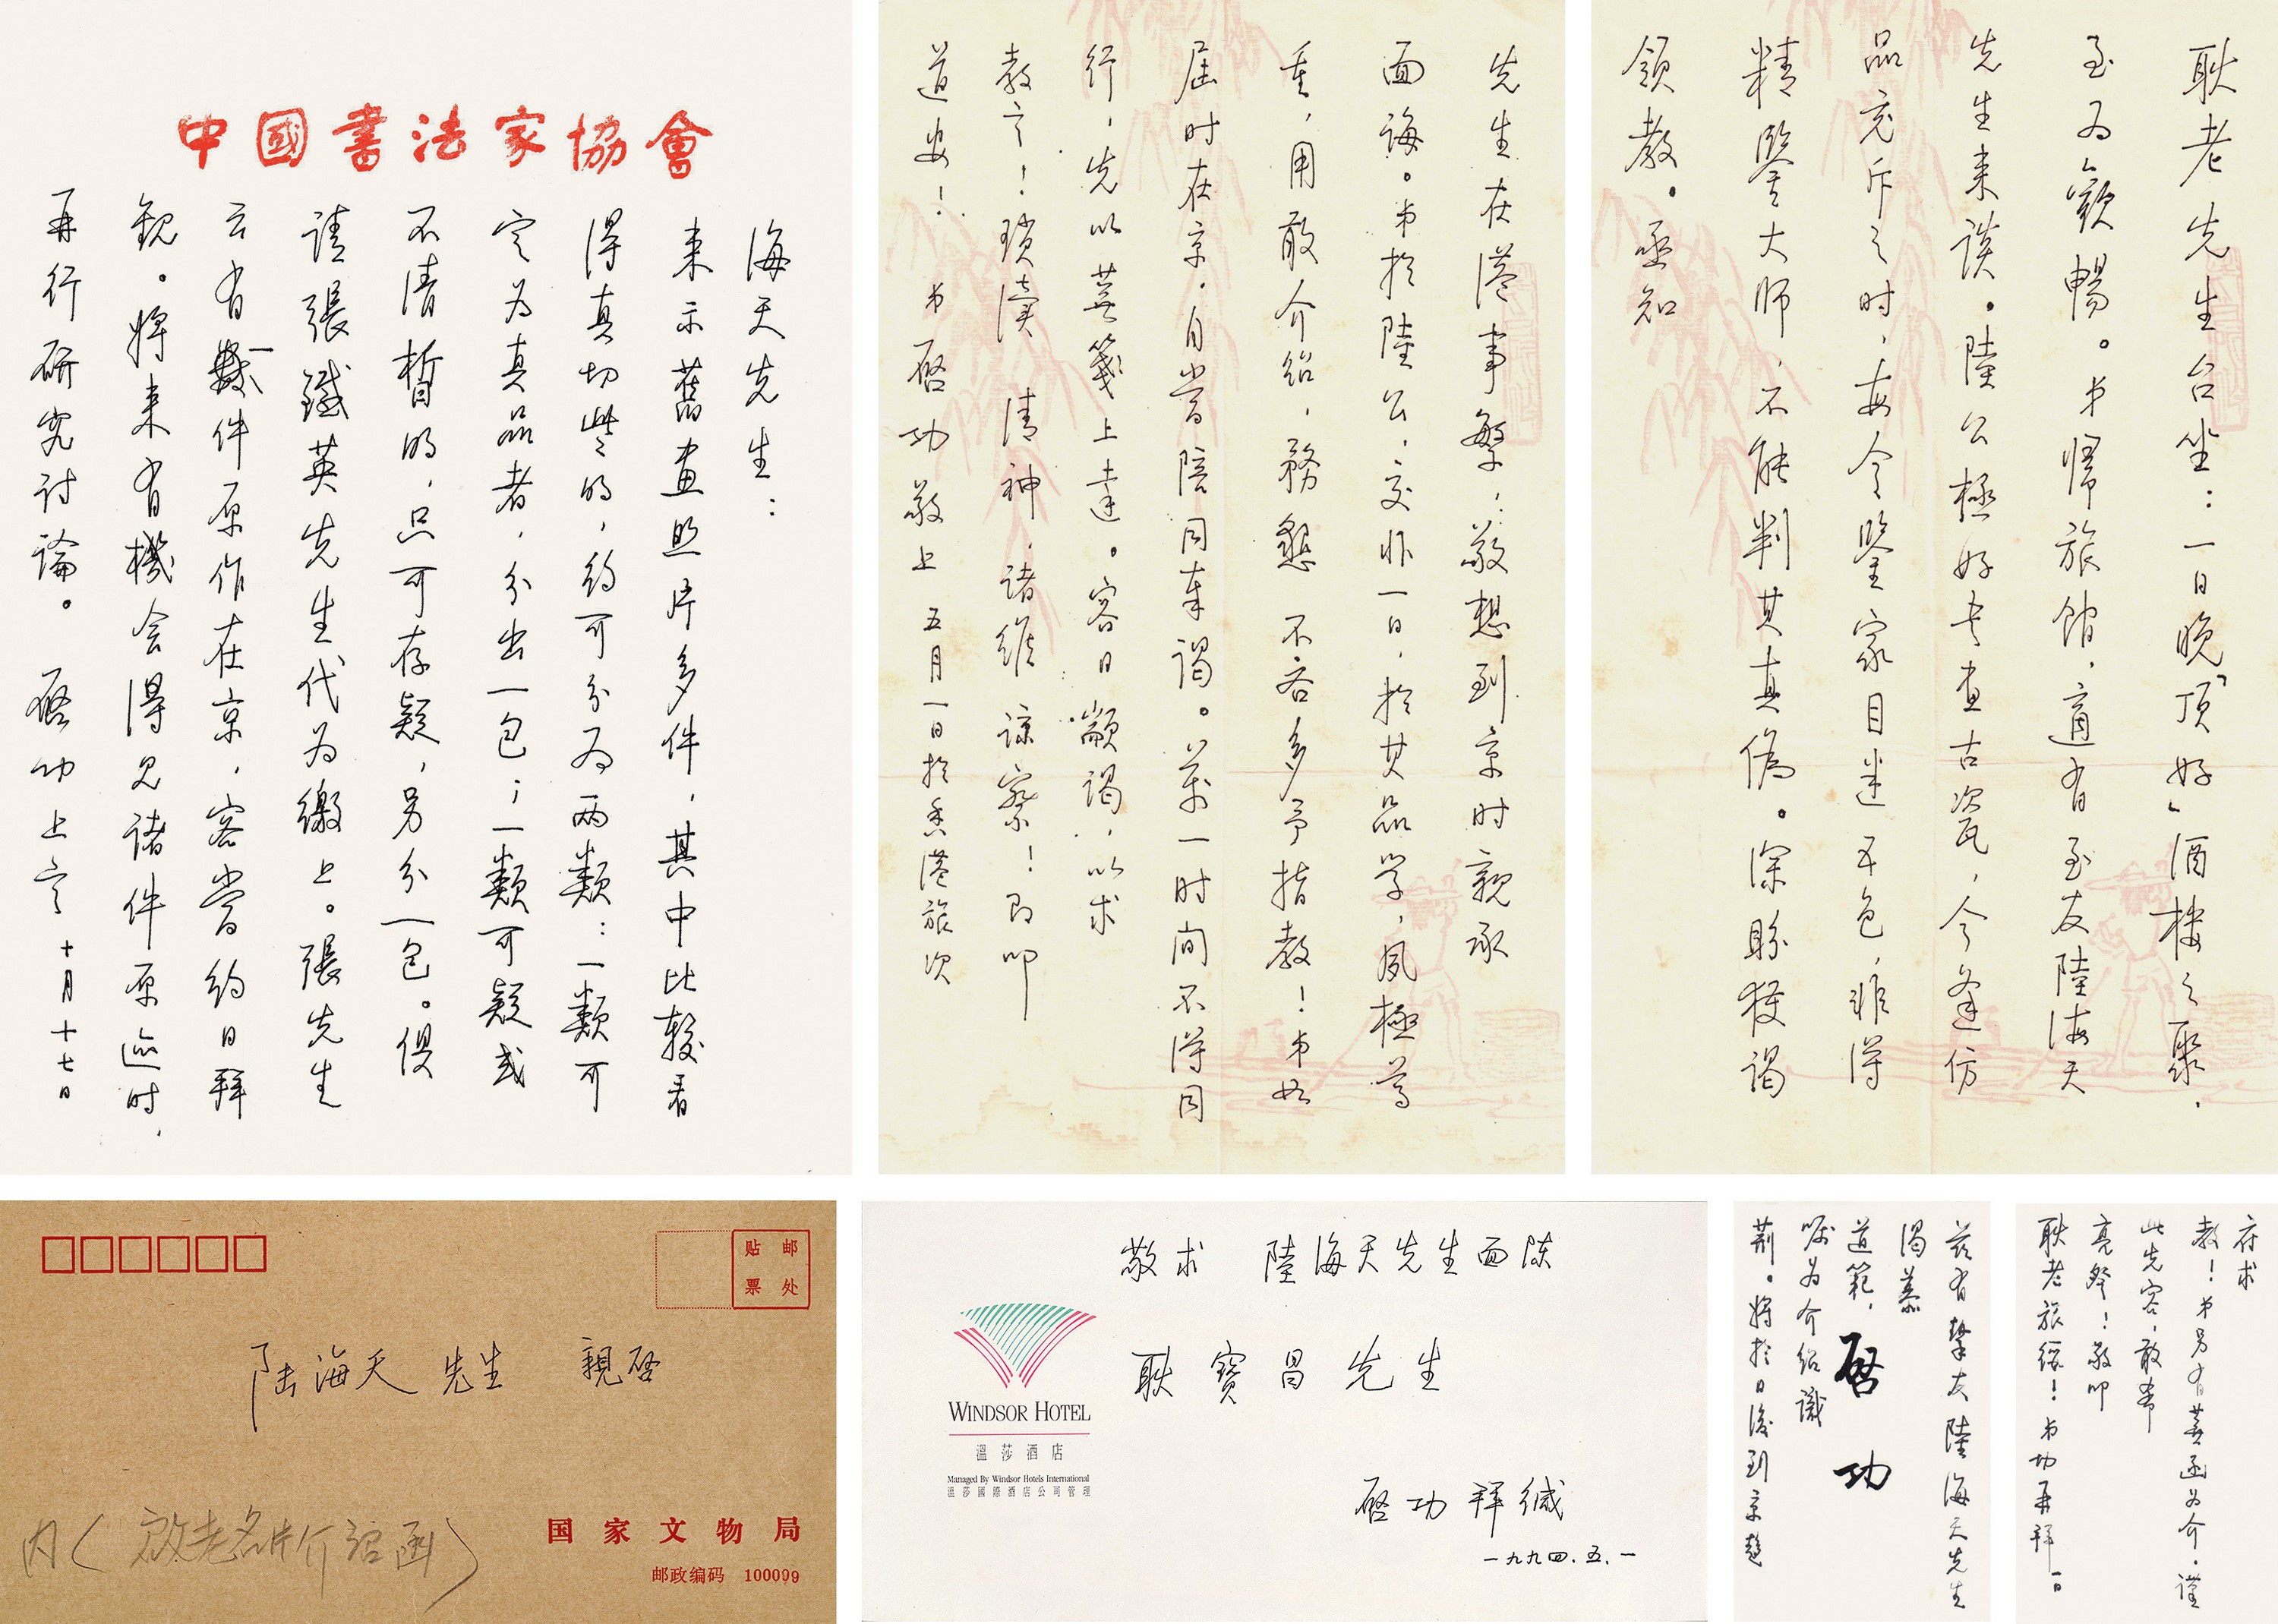 中國書法家協會
海天先生：
来示舊画照片多件，其中比較看
得真切些的，約可分为两類：一類可
定为真品者，分出一包；一類可疑或
不清晳的，只可存疑，另分一包。俱
请張鐵英先生代为繳上。張先生
云有一件原作在京，容當約日拜
觀。将来有機会得见诸件原迹时，
再行研究讨論。 启功上言 十月十七日
耿老先生台坐：一日晚「顶好」酒楼之聚，
至为歡暢。弟歸旅館，適有至友陸海天
先生来谈。陸公極好书画古瓷，今逢仿
品充斥之时，每令鑒家目迷五色，非得
精鑒大师，不能判其真偽。深盼獲謁
領教。亟知
先生在港事繁，敬想到京时親承
面诲。弟於陸公，交非一日，於其品学，夙極尊
重，用敢介紹，務懇 不吝多予指教！弟如
届时在京，自當陪同奉謁。萬一时间不得同
行，先以蕪箋上達。容日耑謁，以求
教言！瑣瀆 清神，诸維 諒察！即叩
道安！ 弟启功敬上 五月一日於香港旅次
贴邮
票处
陆海天 先生 親启
内（启老名片介紹函）
国家文物局
邮政编码 100099
敬求 陸海天先生面陈
耿寶昌先生
WINDSOR HOTEL
溫莎酒店
Managed By Windsor Hotels International
溫莎國際酒店公司管理
启功拜缄
一九九四.五.一
茲有摯友陸海天先生
渴慕
道範，
启功
嘱为介紹識
荆。将於日後到京趨
府求
教！弟另有蕪函为介，謹
此先容，敢希
亮詧！敬叩
耿老旅綏！弟功再拜 一日